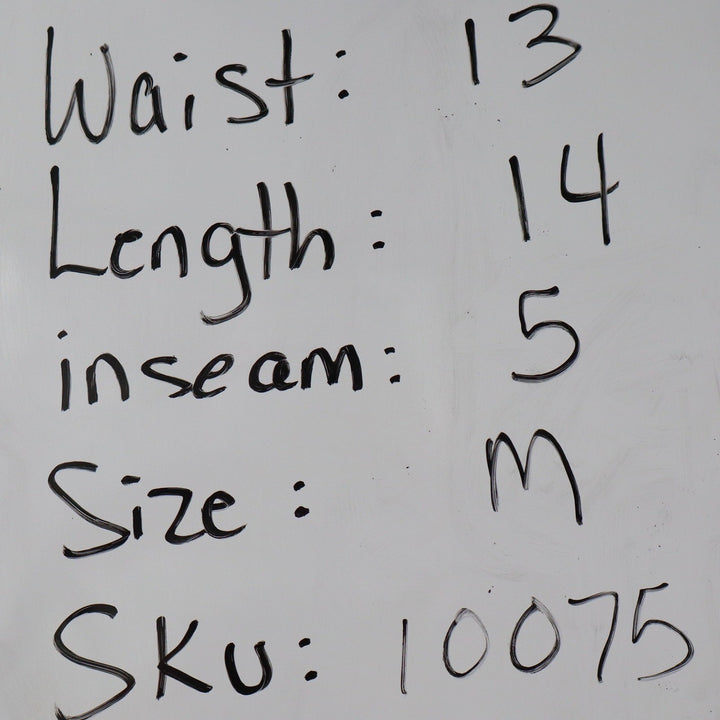 Waist: 13
Length: 14
inseam: 5
Size: M
SKU: 10075